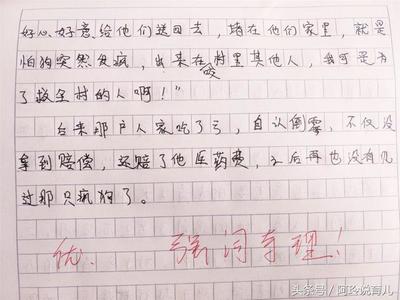 好心好意给他们送回去，堵在他们家里，就是
怕狗突然发疯，出来在村里咬其他人，我可是为
了救全村的人啊！"
后来那户人家吃了亏，自认倒霉，不仅没
拿到赔偿，还赔了他医药费，之后再也没有见
过那只疯狗了。
优 强词夺理！
头条号/阿玲说育儿